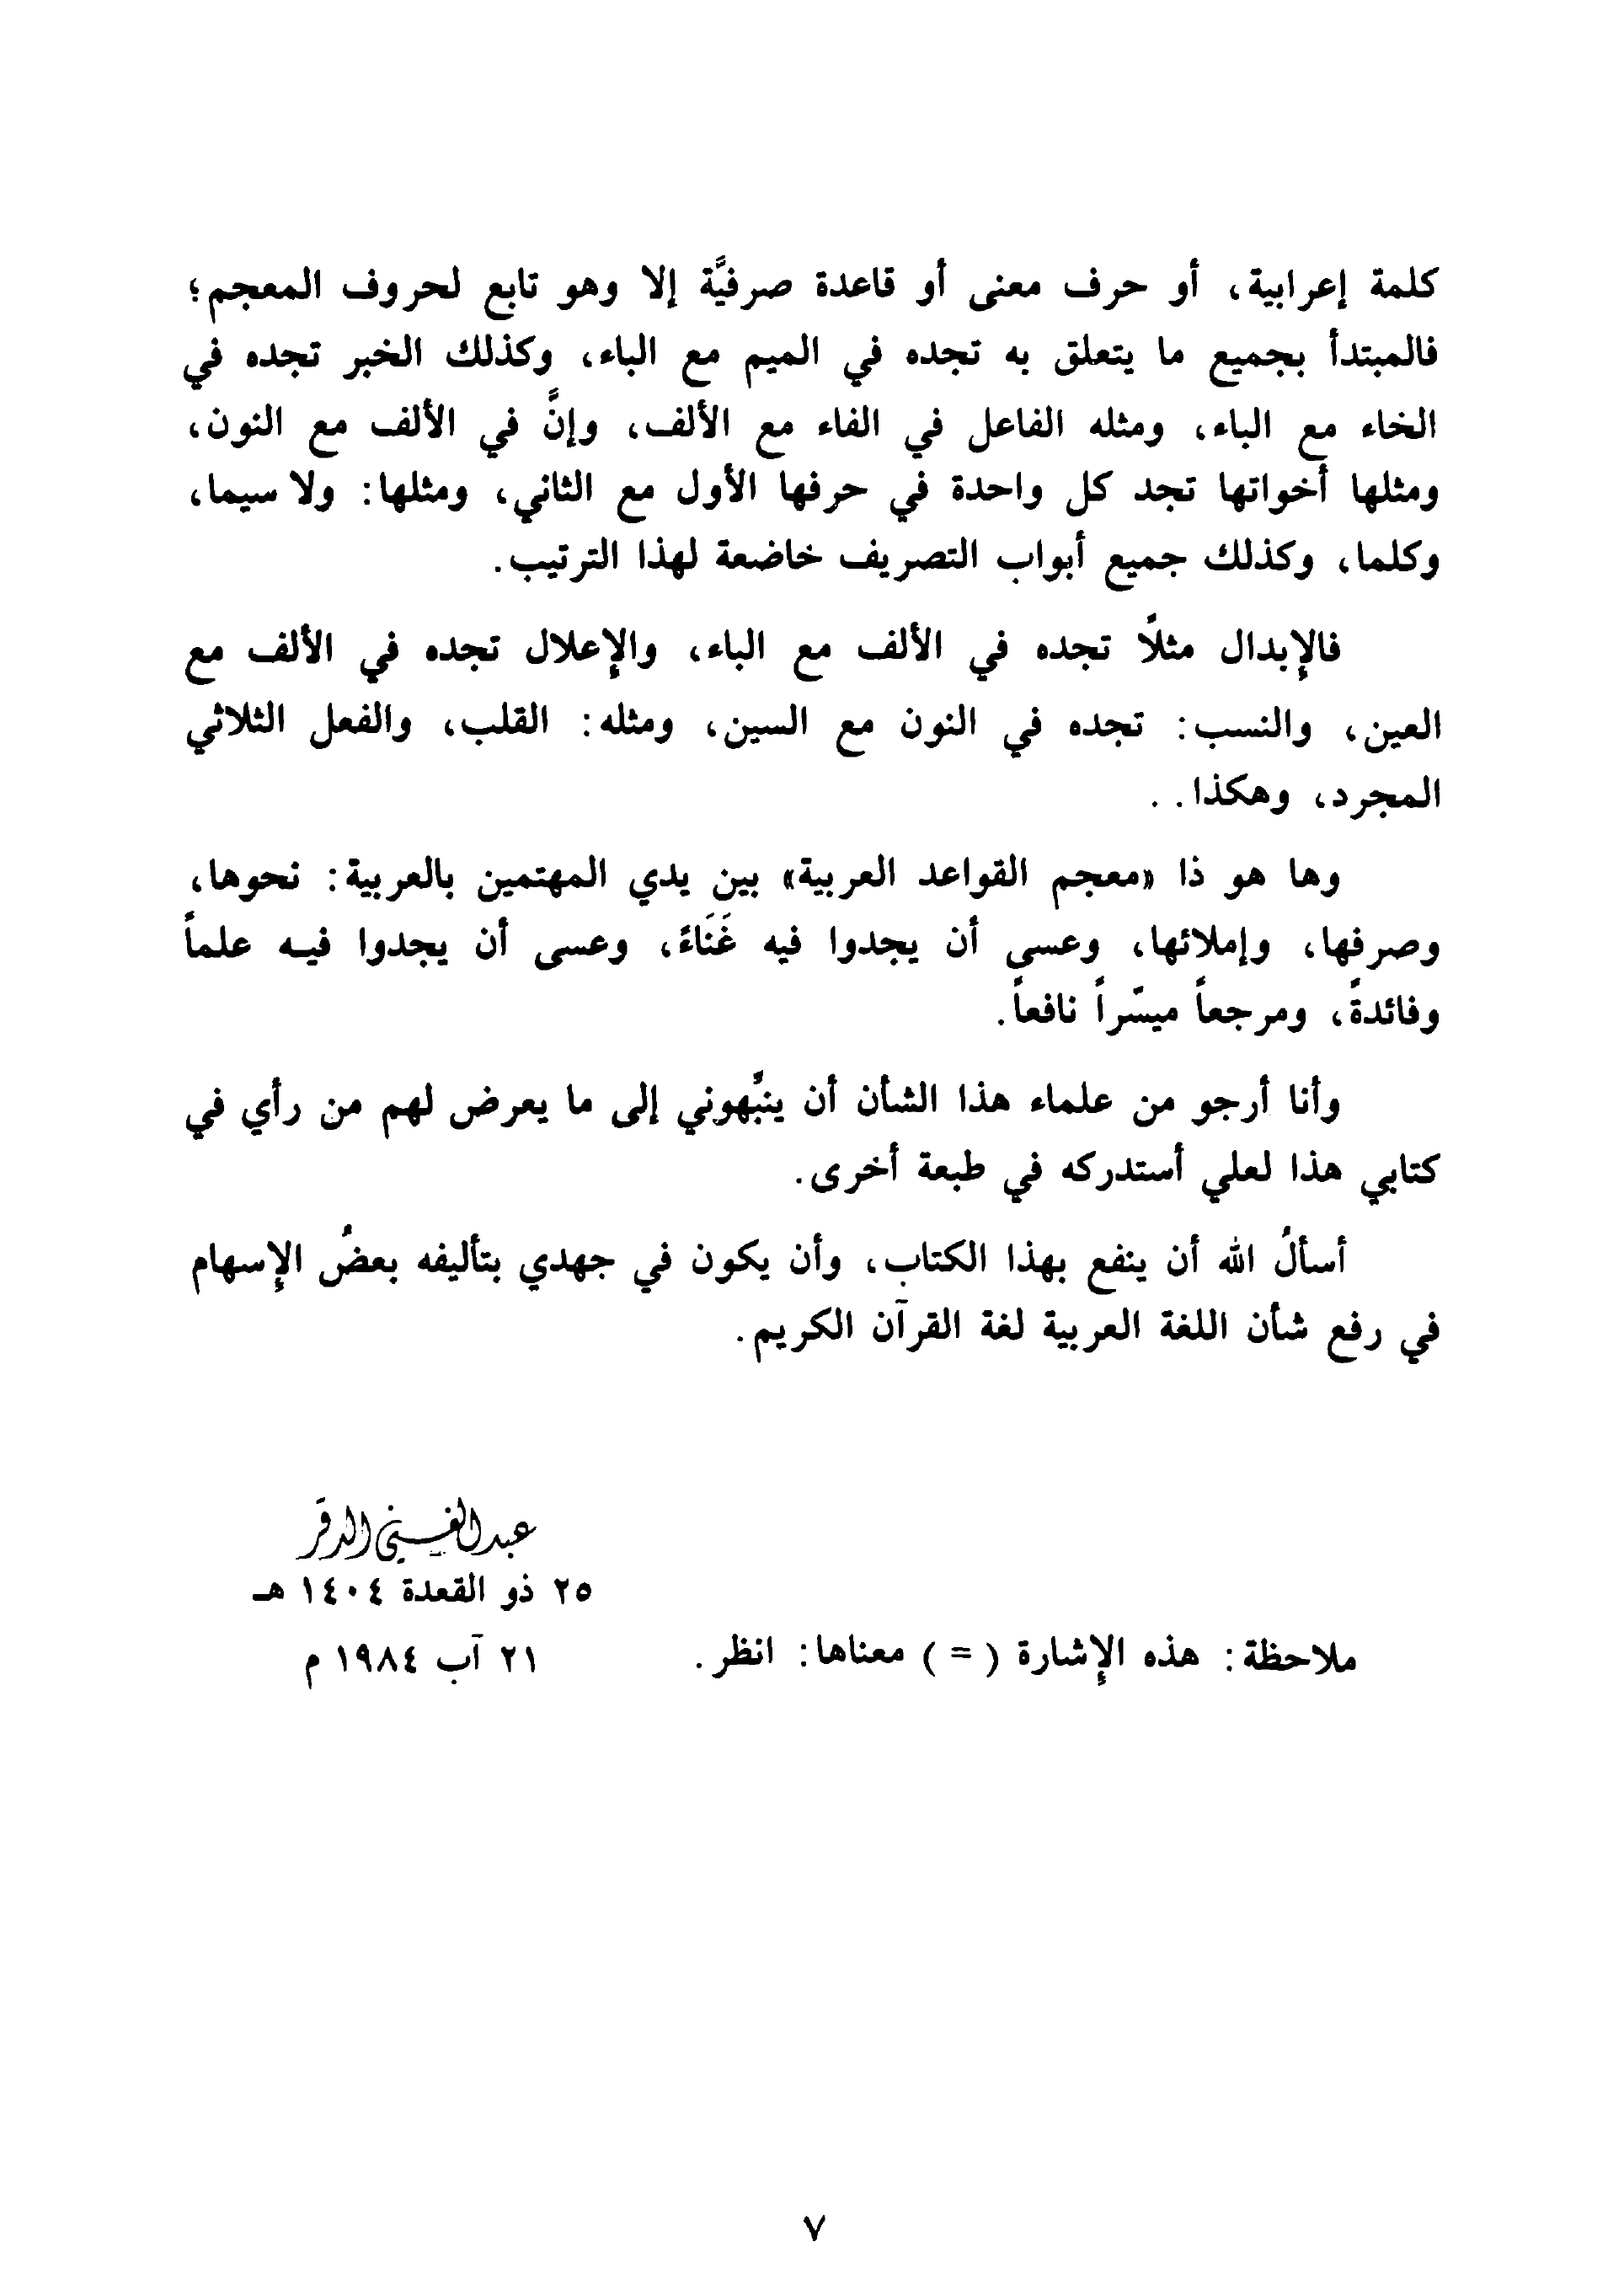 كلمة إعرابية، أو حرف معنى أو قاعدة صرفيَّة إلا وهو تابع لحروف المعجم؛
فالمبتدأ بجميع ما يتعلق به تجده في الميم مع الباء، وكذلك الخبر تجده في
الخاء مع الباء، ومثله الفاعل في الفاء مع الألف، وإنَّ في الألف مع النون،
ومثلها أخواتها تجد كل واحدة في حرفها الأول مع الثاني، ومثلها: ولا سيما،
وكلما، وكذلك جميع أبواب التصريف خاضعة لهذا الترتيب.
فالإبدال مثلاً تجده في الألف مع الباء، والإعلال تجده في الألف مع
العين، والنسب: تجده في النون مع السين، ومثله: القلب، والفعل الثلاثي
المجرد، وهكذا. .
وها هو ذا «معجم القواعد العربية» بين يدي المهتمين بالعربية: نحوها،
وصرفها، وإملائها، وعسى أن يجدوا فيه غَنَاءً، وعسى أن يجدوا فيه علماً
وفائدةً، ومرجعاً ميسّراً نافعاً.
وأنا أرجو من علماء هذا الشأن أن ينبِّهوني إلى ما يعرض لهم من رأي في
كتابي هذا لعلي أستدركه في طبعة أخرى.
أسألُ الله أن ينفع بهذا الكتاب، وأن يكون في جهدي بتأليفه بعضُ الإسهام
في رفع شأن اللغة العربية لغة القرآن الكريم.
عبد الغني الدقر
٢٥ ذو القعدة ١٤٠٤ هـ
ملاحظة: هذه الإشارة ( = ) معناها: انظر. ٢١ آب ١٩٨٤ م
٧